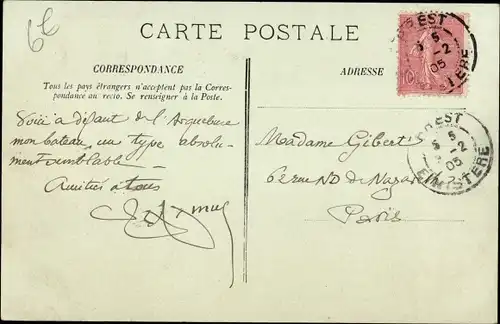 6 E
CARTE POSTALE
BREST
5
5 -2
05
FINISTERE
10
CORRESPONDANCE
ADRESSE
Tous les pays étrangers n'acceptent pas la Corres-
pondance au recto. Se renseigner à la Poste.
Voici à défaut de l'Arquebuse
mon bateau, un type absolu-
ment semblable -
Amitiés à tous
BREST
5
5 -2
05
FINISTERE
Madame Gibert
62 rue ND de Nazareth
Paris